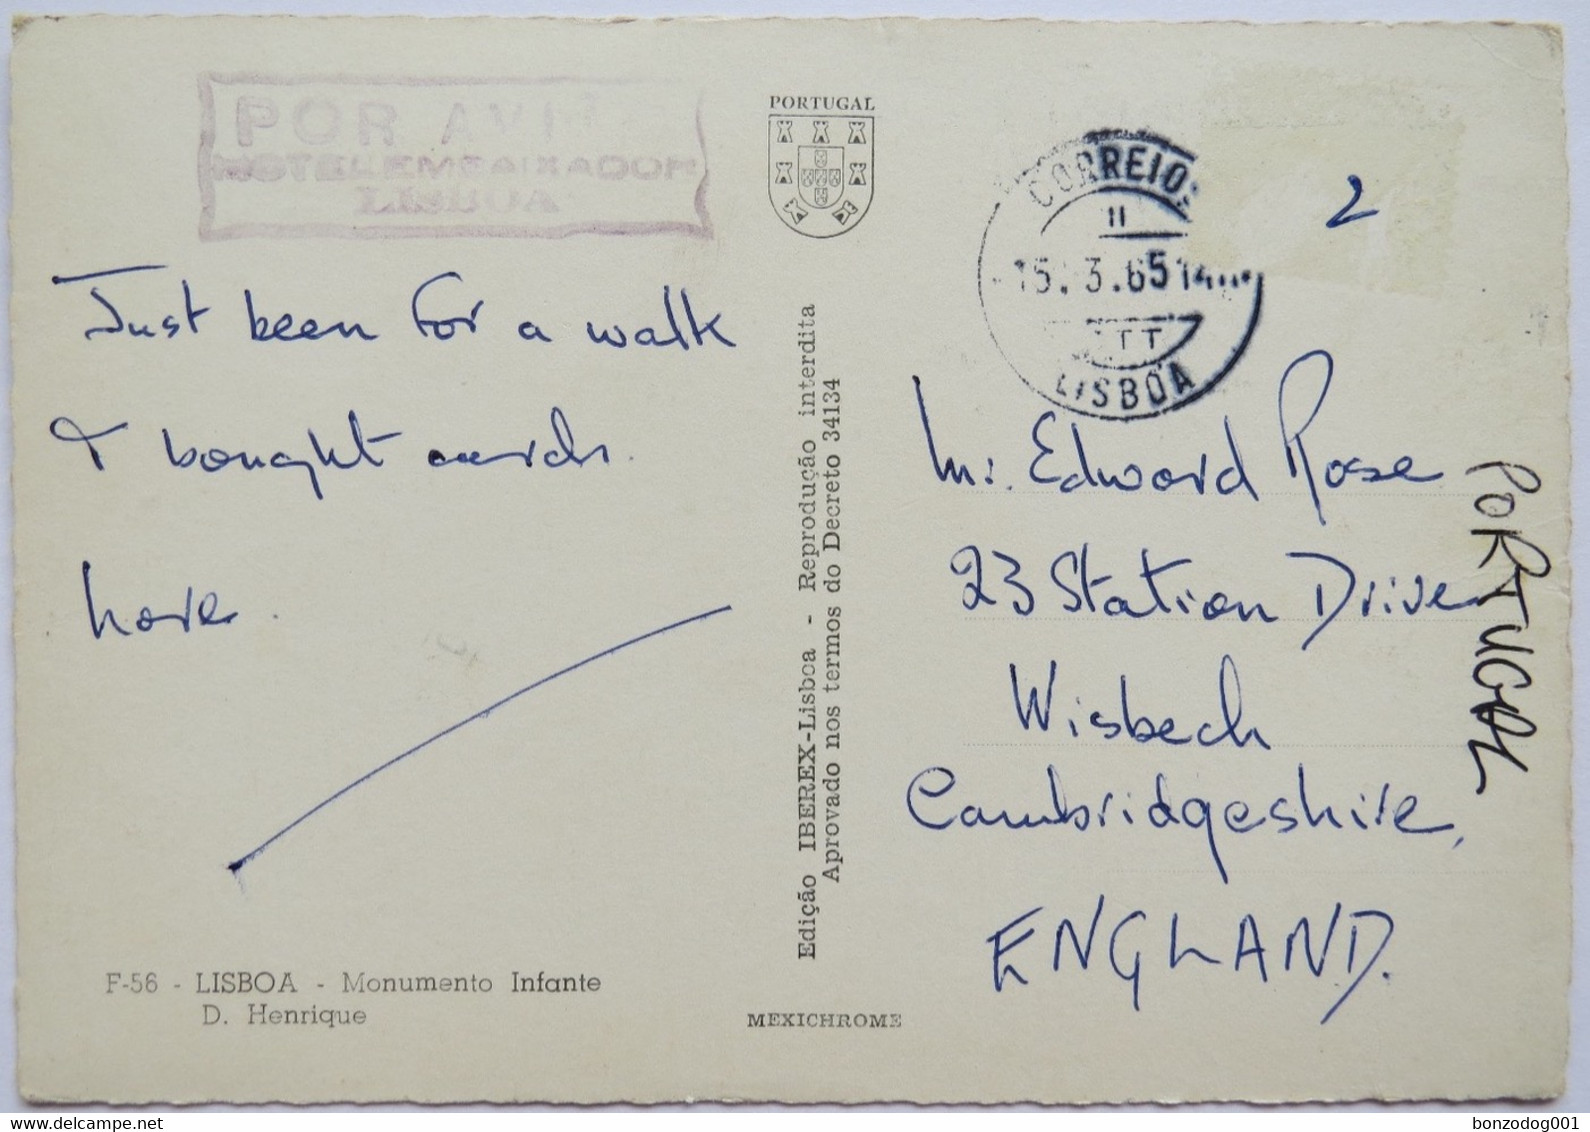 POR AVI
HOTEL EMBAIXADOR
LISBOA
Just been for a walk
& bought cards
here.
F-56 - LISBOA - Monumento Infante
D. Henrique
PORTUGAL
Edição IBEREX-Lisboa - Reprodução interdita
Aprovado nos termos do Decreto 34134
MEXICHROME
CORREIOS
II
15.3.65 14
TT
LISBOA
2
Mr. Edward Rose
23 Station Drive
Wisbech
Cambridgeshire,
ENGLAND.
PORTUGAL
bonzodog001